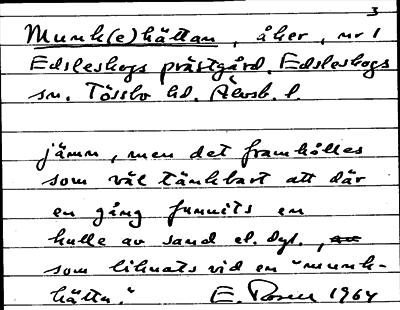 3
Munk(e)hättan, åker, nr 1
Edsleskogs prästgård. Edsleskogs
sn. Tössbo hd. Älvsb. l.
jämn, men det framhålles
som väl tänkbart att där
en gång funnits en
kulle av sand el. dyl.,
som liknats vid en "munk-
hätta."
E. Rosen 1964